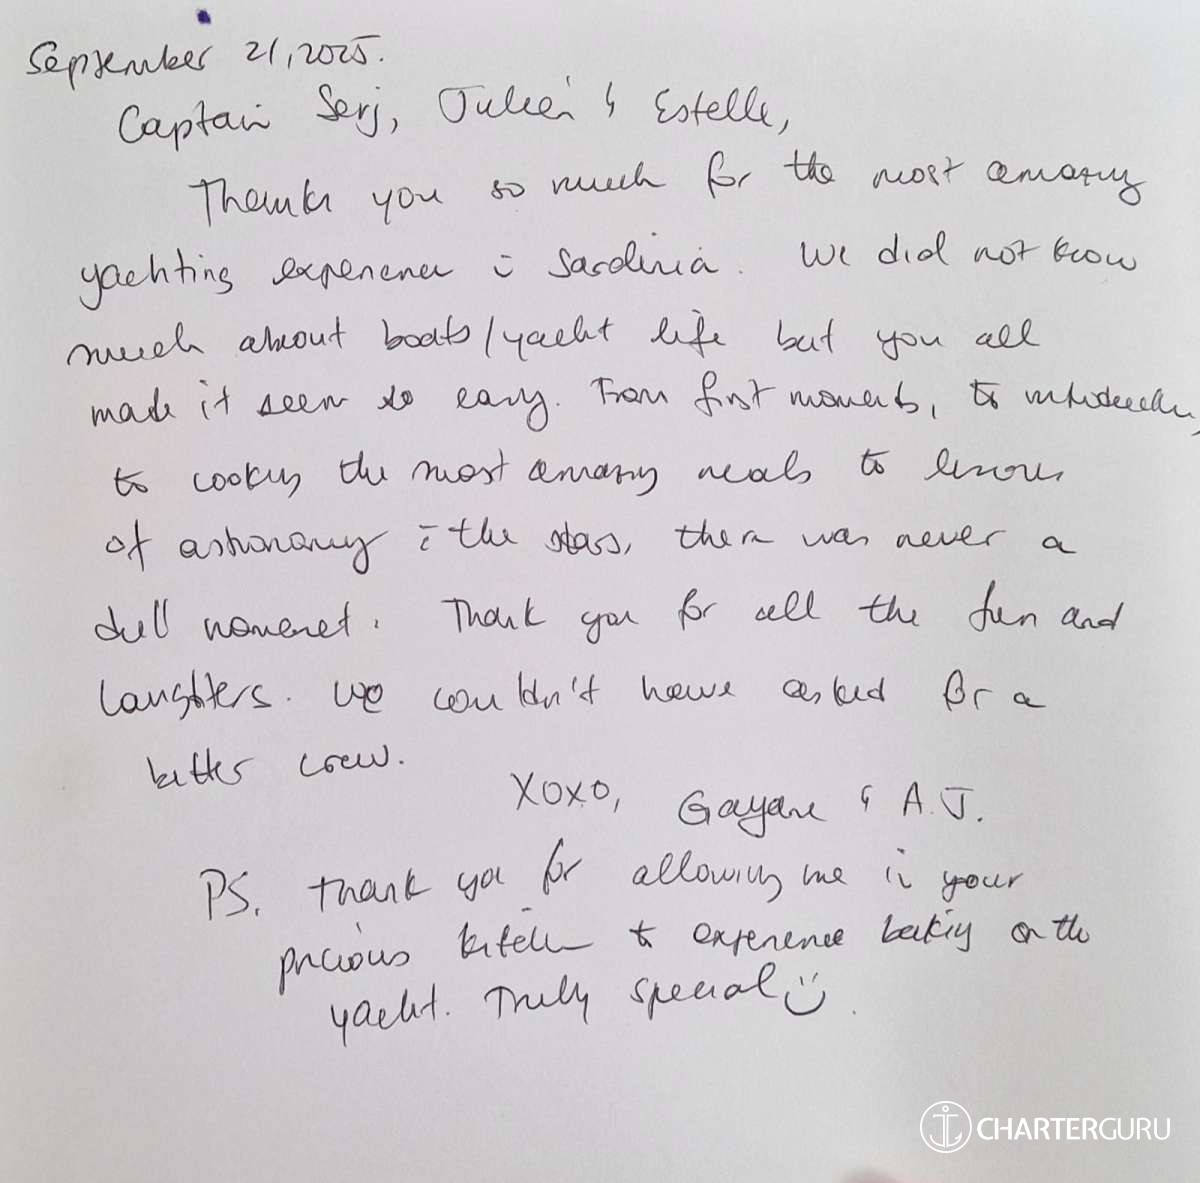 September 21, 2025.
Captain Serj, Julien & Estelle,
Thank you so much for the most amazing
yachting experience in Sardinia. We did not know
much about boats/yacht life but you all
made it seem so easy. From first moments, to introduction,
to cooking the most amazing meals to lessons
of astronomy in the stars, there was never a
dull moment. Thank you for all the fun and
laughters. We couldn't have asked for a
better crew.
XOXO, Gayane & A.J.
PS. Thank you for allowing me in your
precious kitchen to experience baking on the
yacht. Truly special
CHARTERGURU